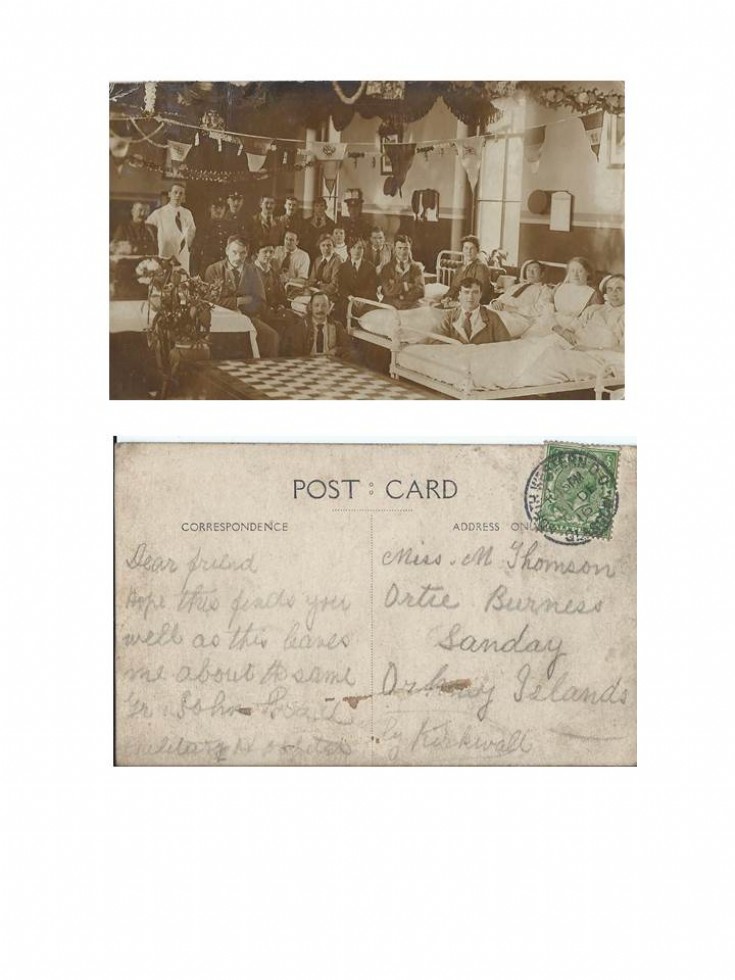 POST : CARD
CORRESPONDENCE
ADDRESS ONLY
Dear friend
Hope this finds you
well as this leaves
me about the same
Gr. John
Military Hospital
Miss. M Thomson
Ortie Burness
Sanday
Orkney Islands
by Kirkwall